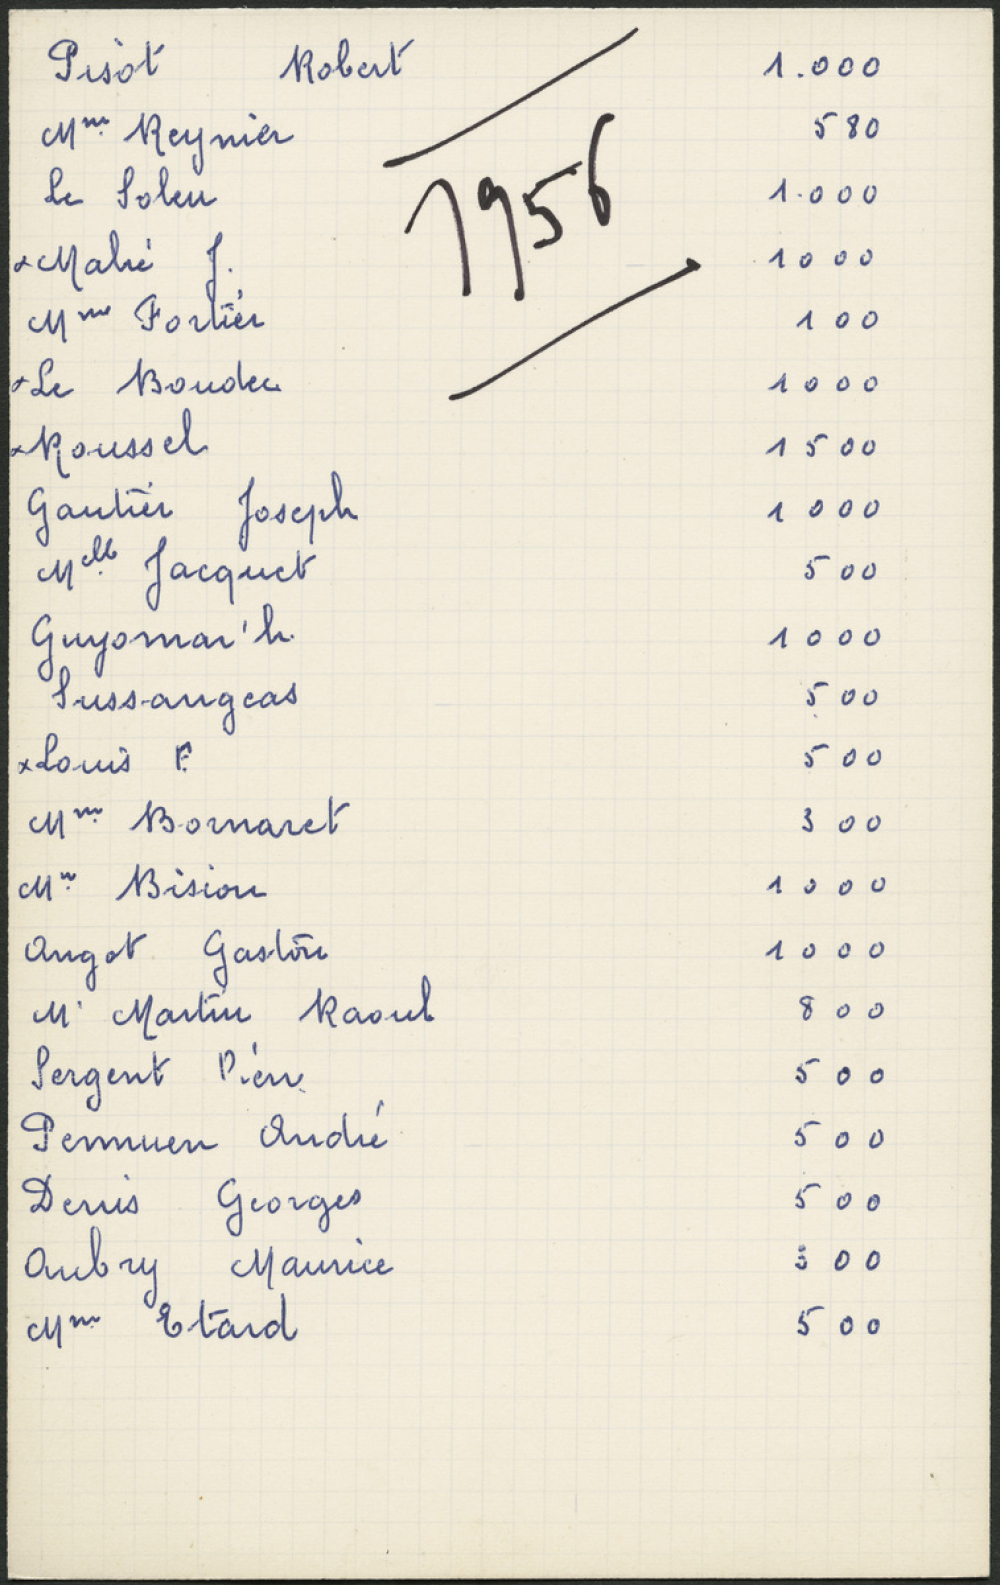 Pisot Robert 1.000
1956
Mme Reynier 580
Le Soleu 1.000
x Mahé J. 1000
Mme Fortier 100
x Le Boudec 1000
x Roussel 1500
Gautier Joseph 1000
Melle Jacquet 500
Guyomar'h 1000
Sussangeas 500
x Louis F. 500
Mme Bornaret 300
Mr Bision 1000
Angot Gaston 1000
Mr Martin Raoul 800
Sergent 500
Pennuen André 500
Denis Georges 500
Aubry Maurice 300
Mme Etard 500